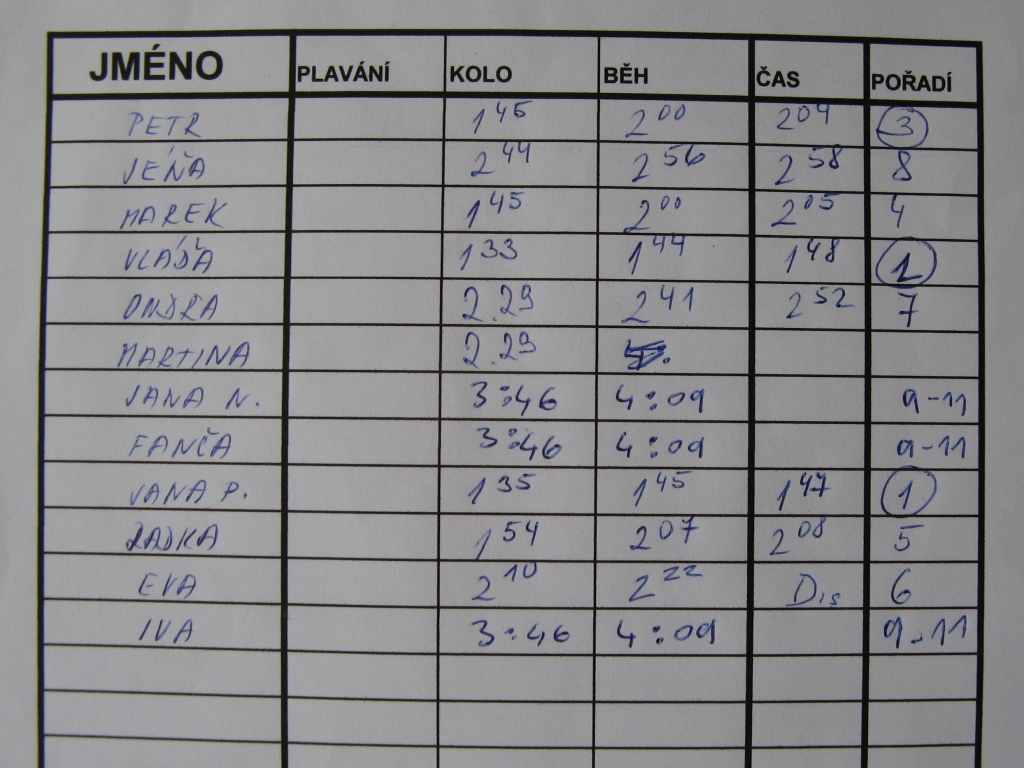 JMÉNO PLAVÁNÍ KOLO BĚH ČAS POŘADÍ
PETR 1 45 2 00 2 04 3
JEŇA 2 44 2 56 2 58 8
MAREK 1 45 2 00 2 05 4
VLÁĎA 1 33 1 44 1 48 1
ONDRA 2.29 2 41 2 52 7
MARTINA 2.29
JANA N. 3:46 4:09 9-11
FANČA 3:46 4:09 9-11
JANA P. 1 35 1 45 1 47 1
RADKA 1 54 2 07 2 08 5
EVA 2 10 2 22 Dis 6
IVA 3:46 4:09 9-11